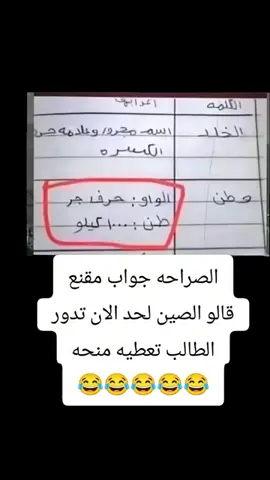 الكلمه اعرابها
الخلد اسم مجرور وعلامه جره
الكسره
وطن الواو: حرف جر
طن: ١٠٠٠ كيلو
الصراحه جواب مقنع
قالو الصين لحد الان تدور
الطالب تعطيه منحه
😂😂😂😂😂